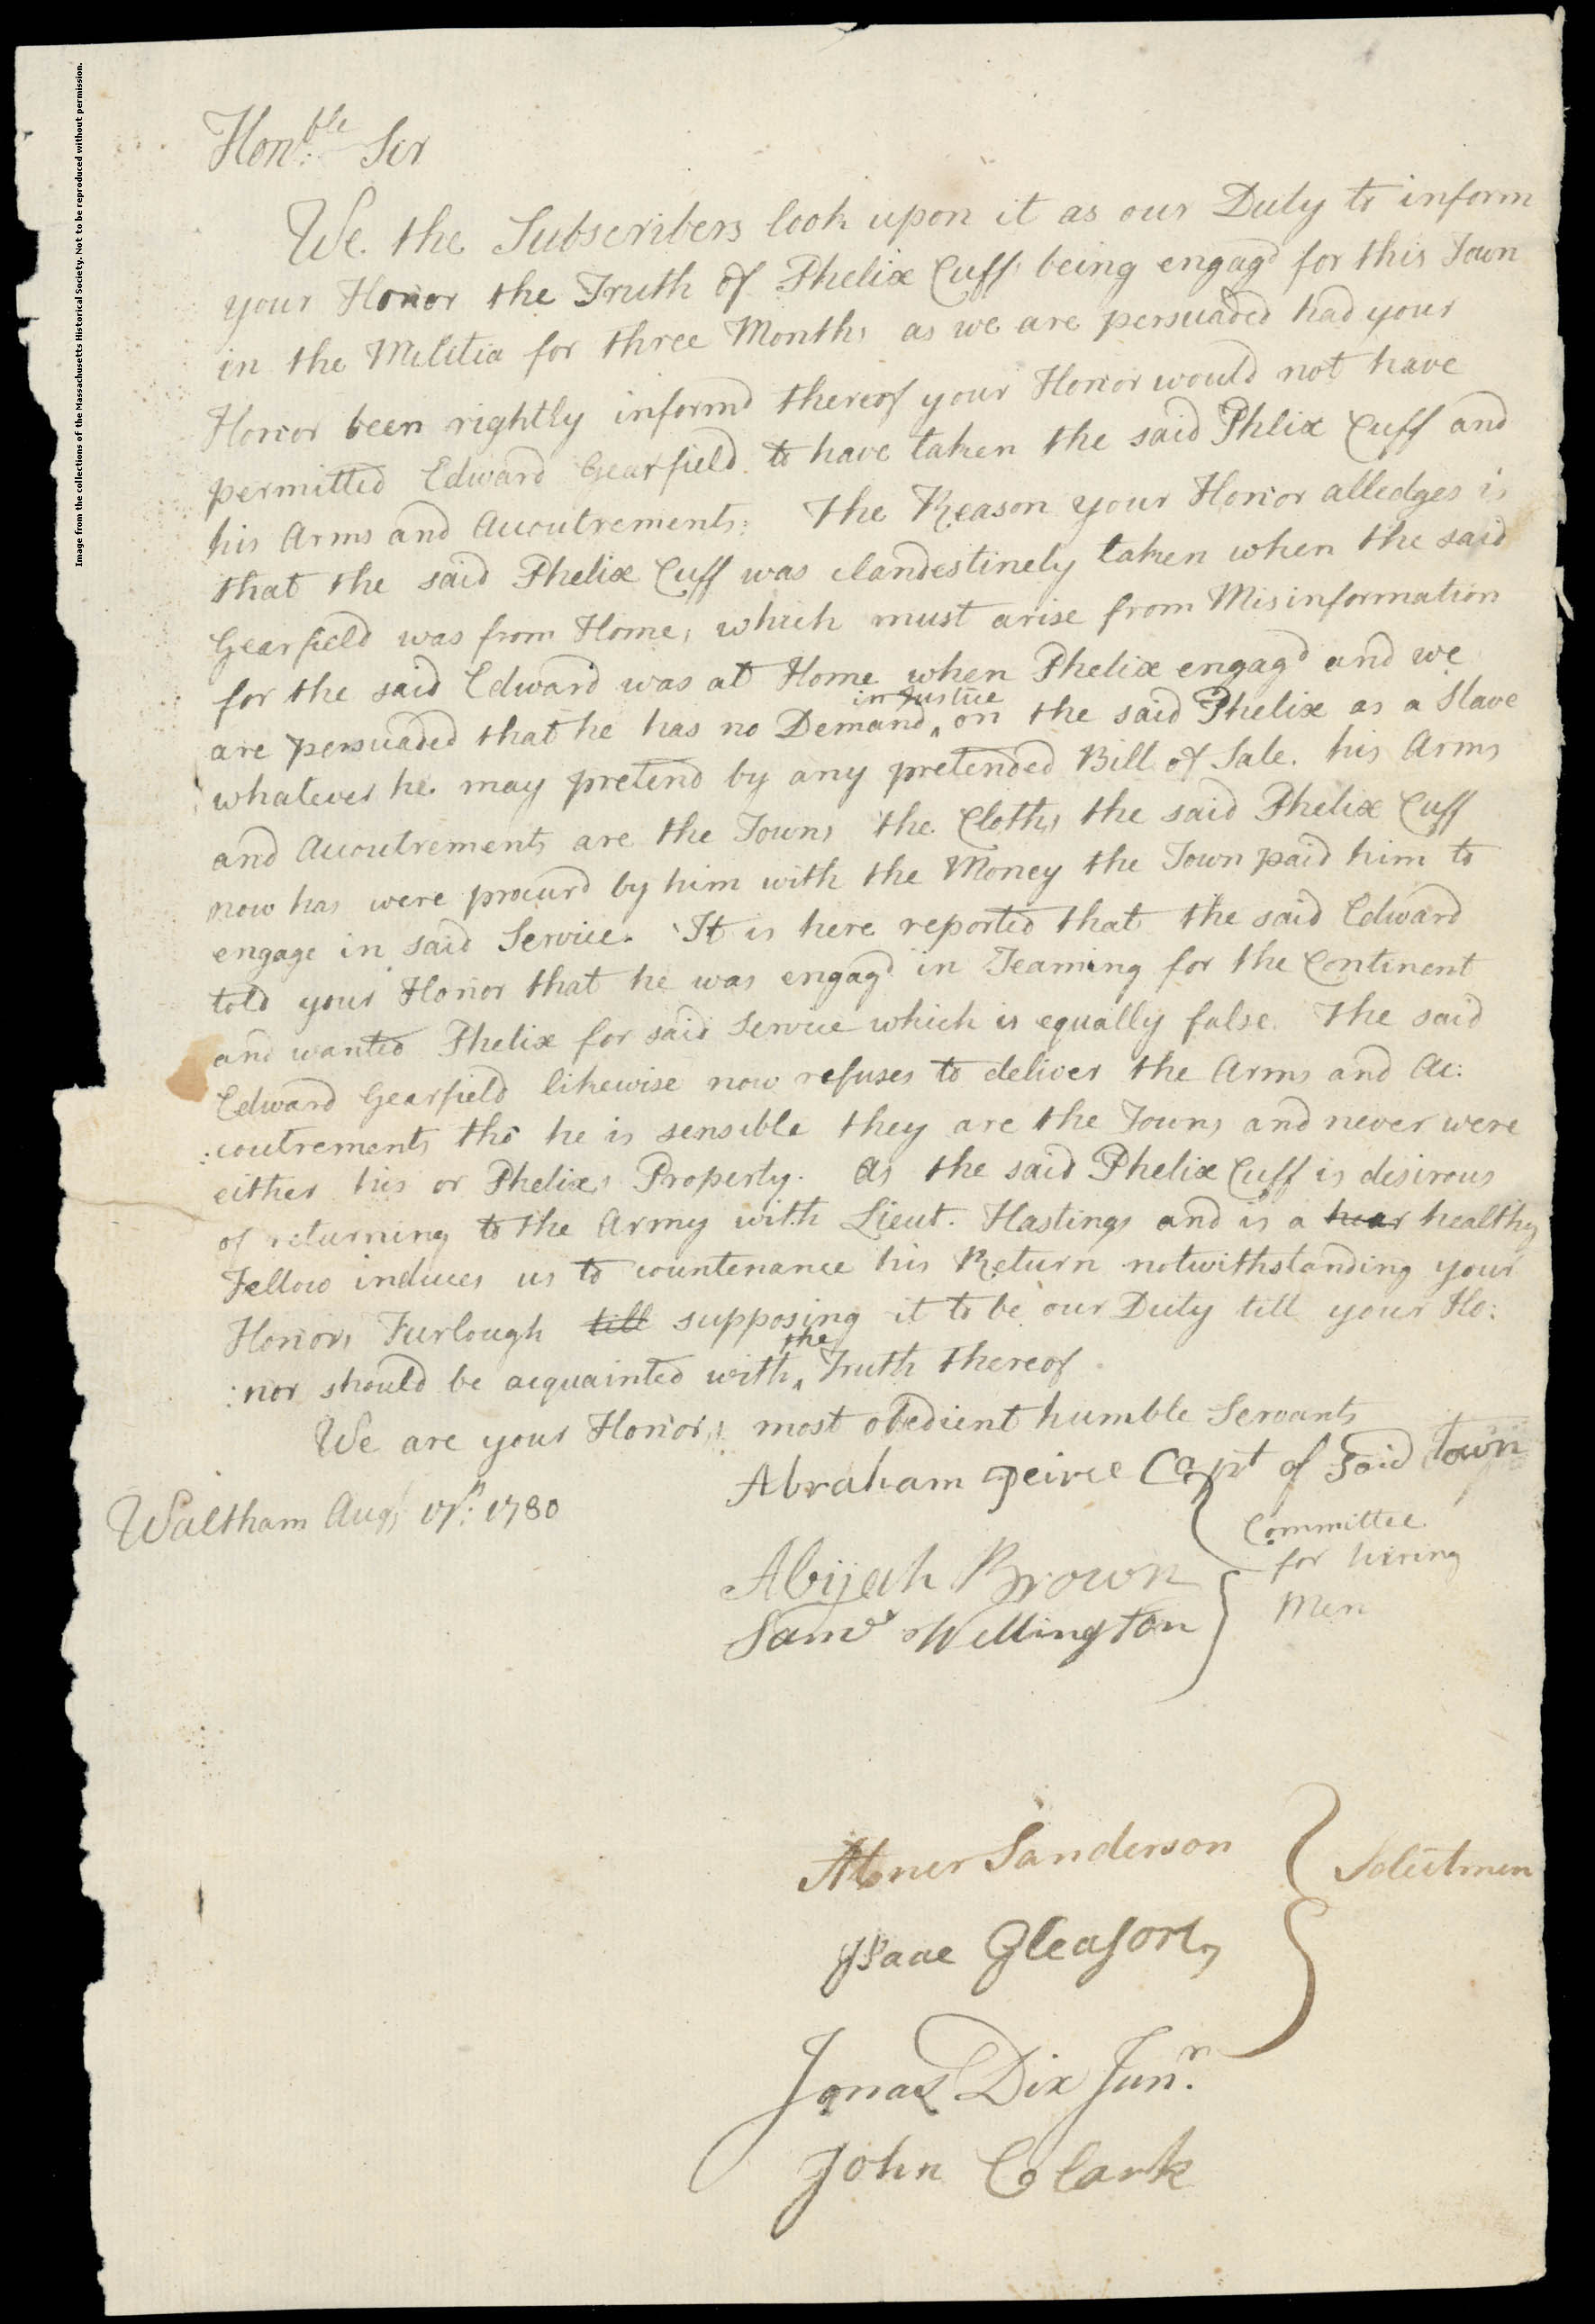 Image from the collections of the Massachusetts Historical Society. Not to be reproduced without permission.
Hon.ble Sir
We. the Subscribers look upon it as our Duty to inform
your Honor the Truth of Phelix Cuff being engagd for this Town
in the Militia for three Months as we are persuaded had your
Honor been rightly informd thereof your Honor would not have
permitted Edward Gearfield to have taken the said Phlix Cuff and
his Arms and Accoutrements: The Reason your Honor alledges is
that the said Phelix Cuff was clandestinely taken when the said
Gearfield was from Home, which must arise from Misinformation
for the said Edward was at Home when Phelix engagd and we
in Justice
are persuaded that he has no Demand ‸ on the said Phelix as a Slave
whatever he may pretend by any pretended Bill of Sale. his Arms
and Accoutrements are the Towns the Cloths the said Phelix Cuff
now has were procurd by him with the Money the Town paid him to
engage in said Service. It is here reported that the said Edward
told your Honor that he was engagd in Teaming for the Continent
and wanted Phelix for said Service which is equally false. The said
Edward Gearfield likewise now refuses to deliver the Arms and Ac:
:coutrements tho he is sensible they are the Towns and never were
either his or Phelixs Property. As the said Phelix Cuff is desirous
of returning to the Army with Lieut. Hastings and is a hear healthy
Fellow induces us to countenance his Return notwithstanding your
Honors Furlough till supposing it to be our Duty till your Ho:
the
:nor should be acquainted with ‸ Truth thereof
We are your Honors most obedient humble Servants
Abraham Peirce Capt of Said Town
Waltham Augt 17th: 1780
Committee
for hiring
Men
Abijah Brown
Saml Wellington
Abner Sanderson
Selectmen
Isaac Gleason
Jonas Dix Junr.
John Clark